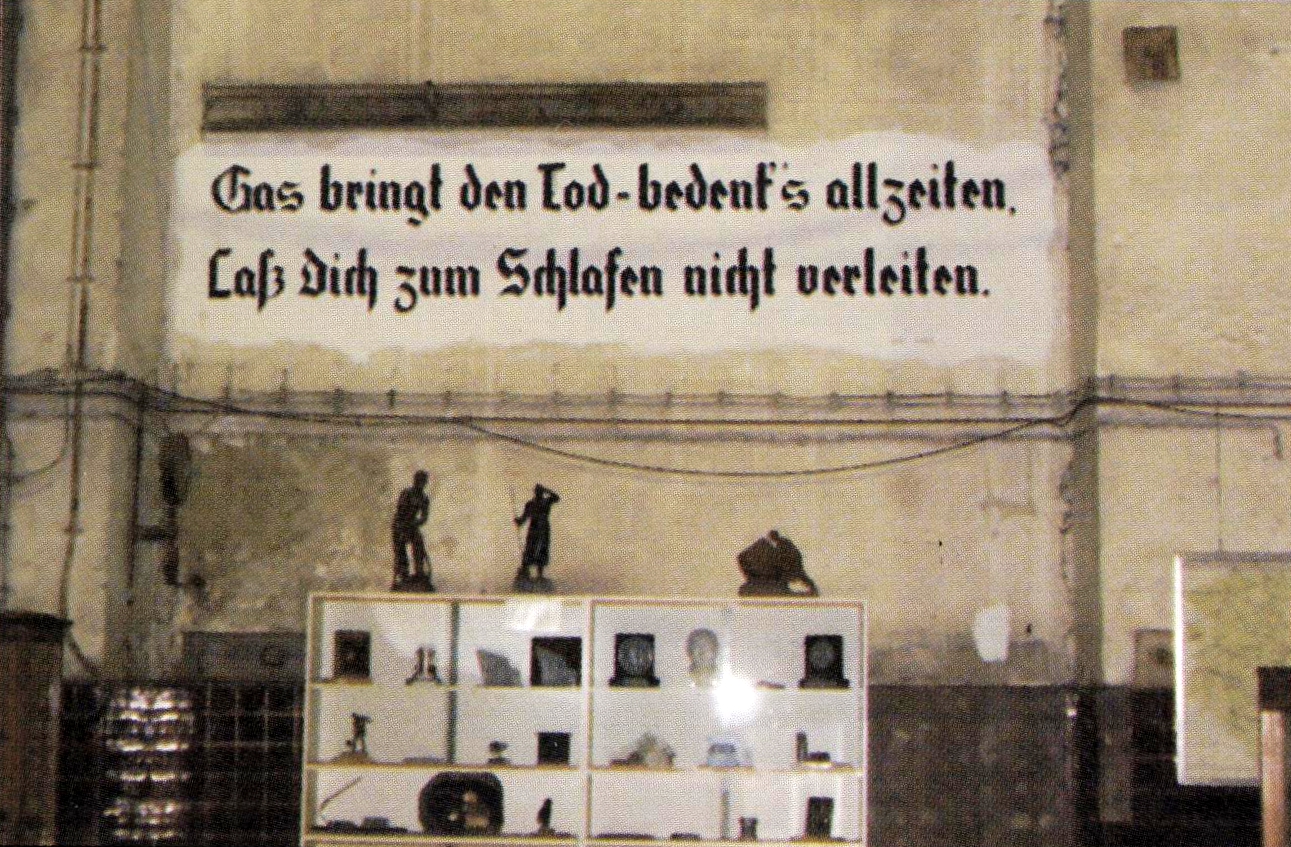 Gas bringt den Tod-bedenk's allzeiten,
Laß Dich zum Schlafen nicht verleiten.